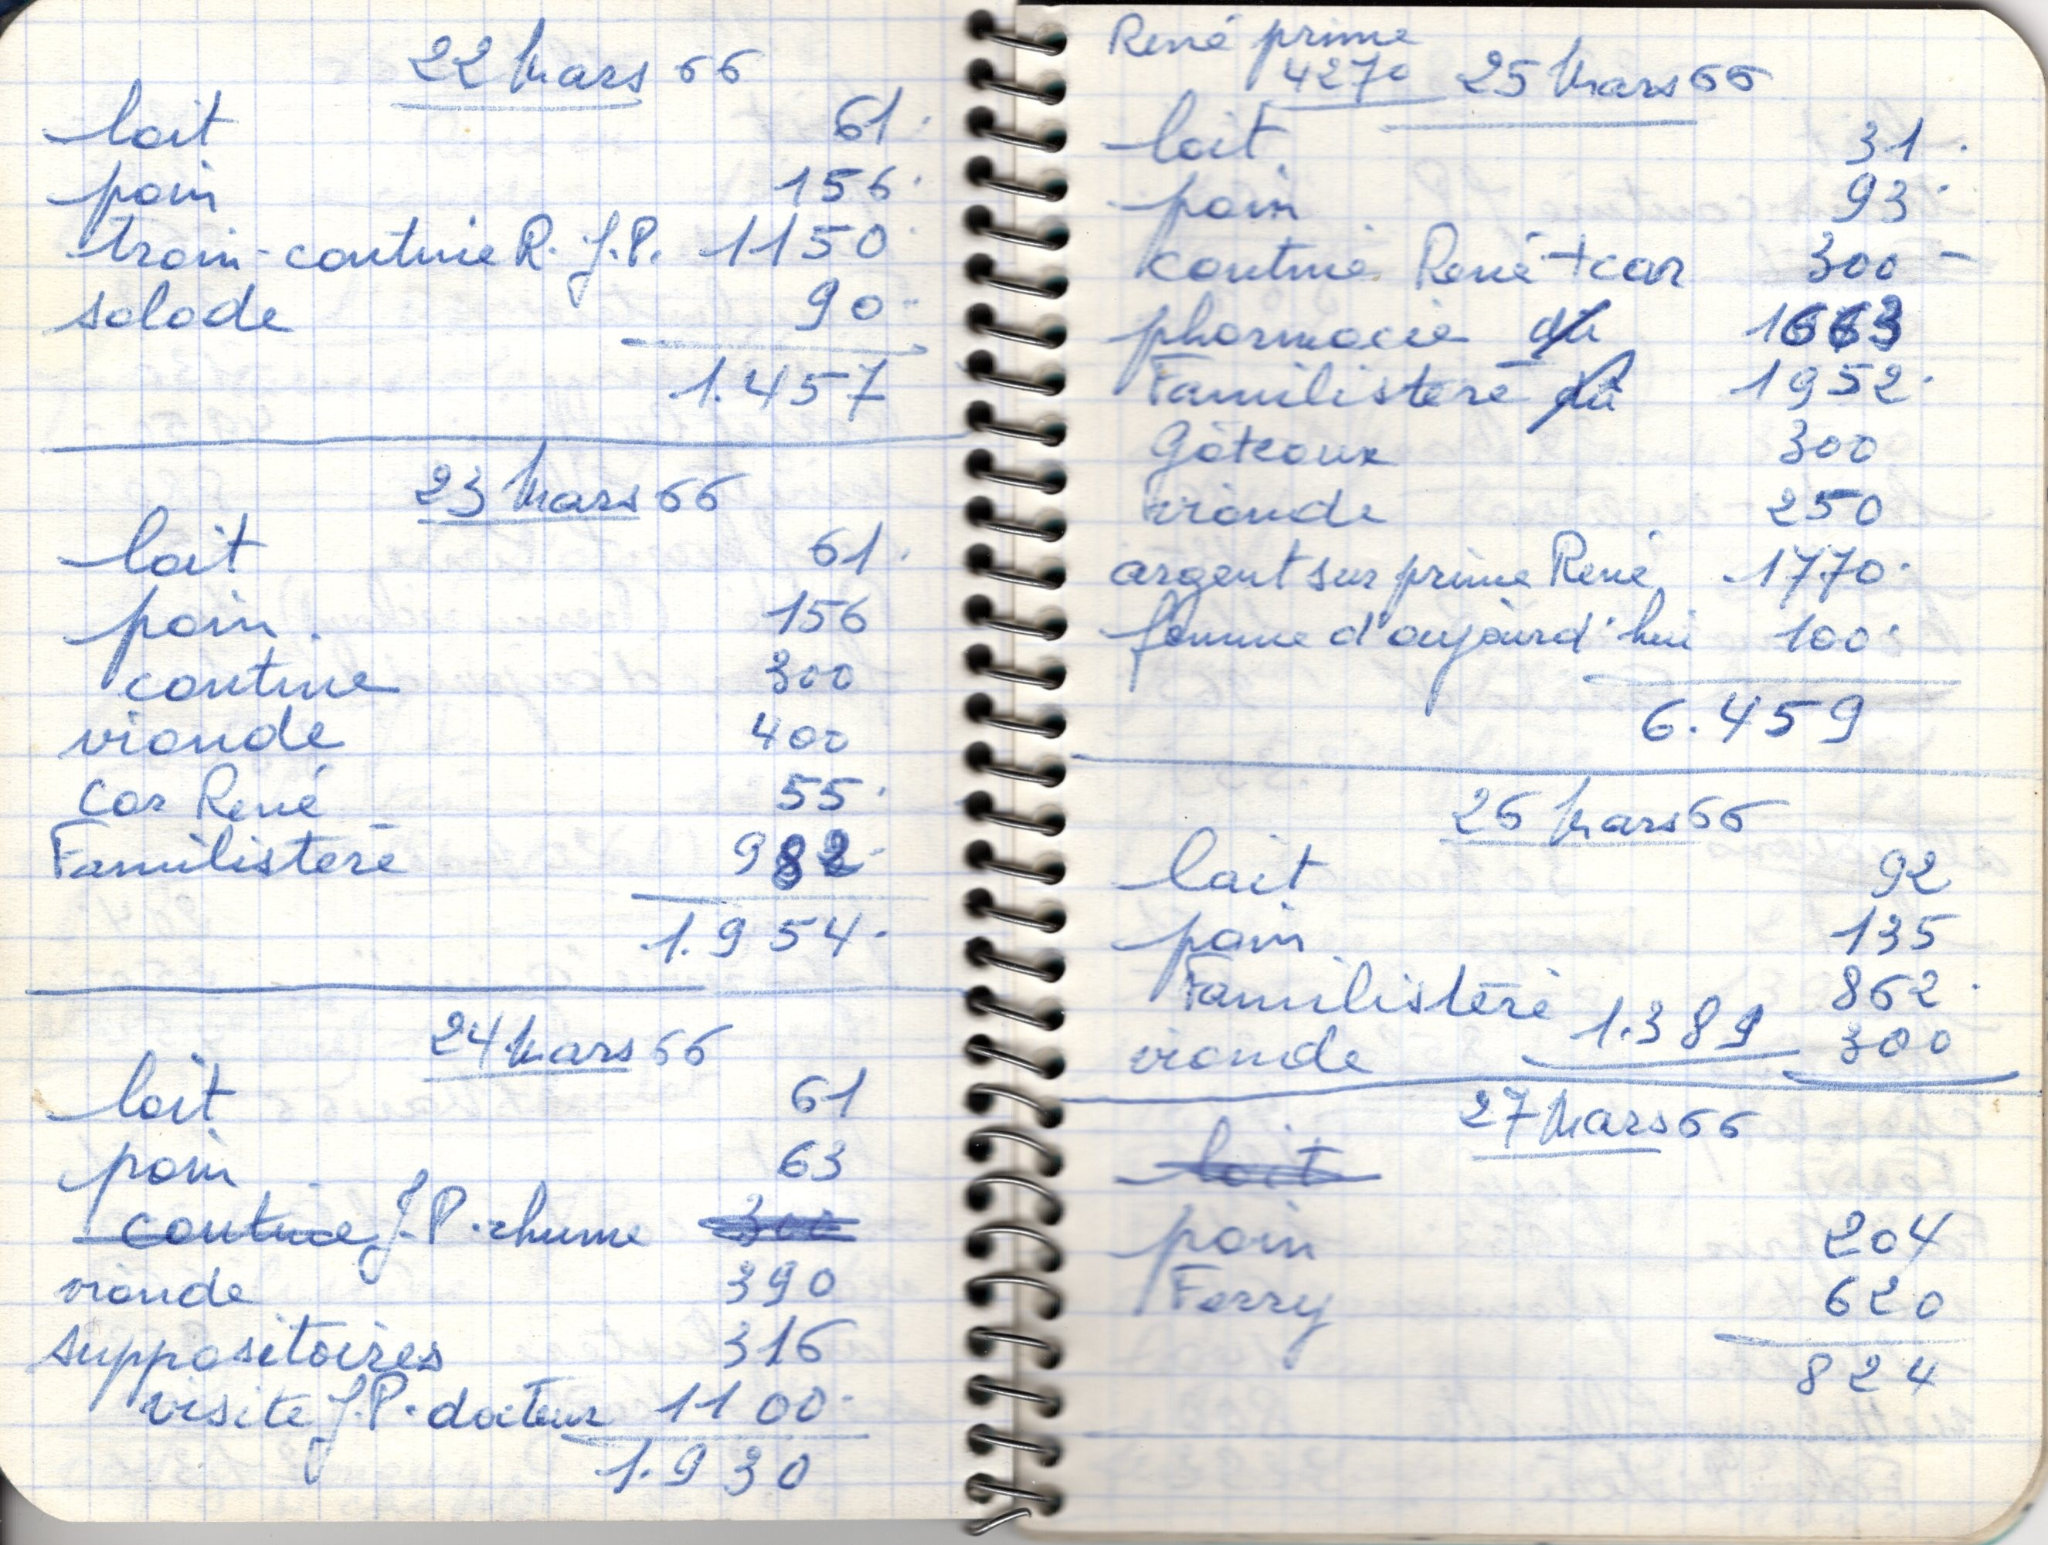 22 Mars 66
lait 61.
pain 156.
train-cantine R. J.P. 1150.
salade 90.
1.457
23 Mars 66
lait 61.
pain. 156
cantine 300
viande 400
Car René 55.
Familistère 982.
1.954.
24 Mars 66
lait 61
pain 63
cantine J.P. rhume 300
viande 390
suppositoires 316
visite J.P. docteur 1100.
1.930
René prime
4270 25 Mars 66
lait. 31.
pain 93.
cantine René + car 300 -
pharmacie dû 1663
Familistère dû 1952.
Gâteaux 300
viande 250
argent sur prime René 1770.
femme d'aujourd'hui 100.
6.459
26 Mars 66
lait 92
pain 135
Familistère 862.
viande 1.389 300
27 Mars 66
lait
pain 204
Ferry 620
824